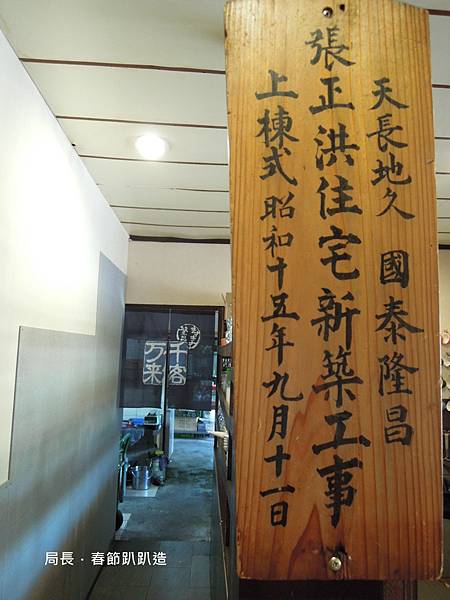 天長地久 國泰隆昌
張正洪住宅新築工事
上棟式昭和十五年九月十一日
千客
万来
局長．春節趴趴造